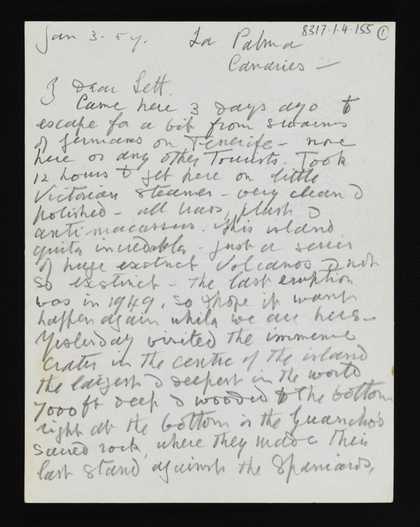 8317.1.4.155 1
Jan 3. 54. La Palma
Canaries —
Dear Sett.
Came here 3 days ago to
escape for a bit from swarms
of Germans on Tenerife — none
here or any other Tourists. Took
12 hours to get here on little
Victorian Steamer — very clean &
polished — all brass, plush &
anti-macassars. This island
quite incredible — just a series
of huge exstinct Volcanos & not
so exstinct — the last eruption
was in 1949, so I hope it wont
happen again while we are here —
Yesterday visited the immense
Crater in the centre of the island
the largest & deepest in the world
7000 ft deep & wooded to the bottom
right at the bottom is the Guancho's
sacred rock, where they made their
last stand against the Spaniards,